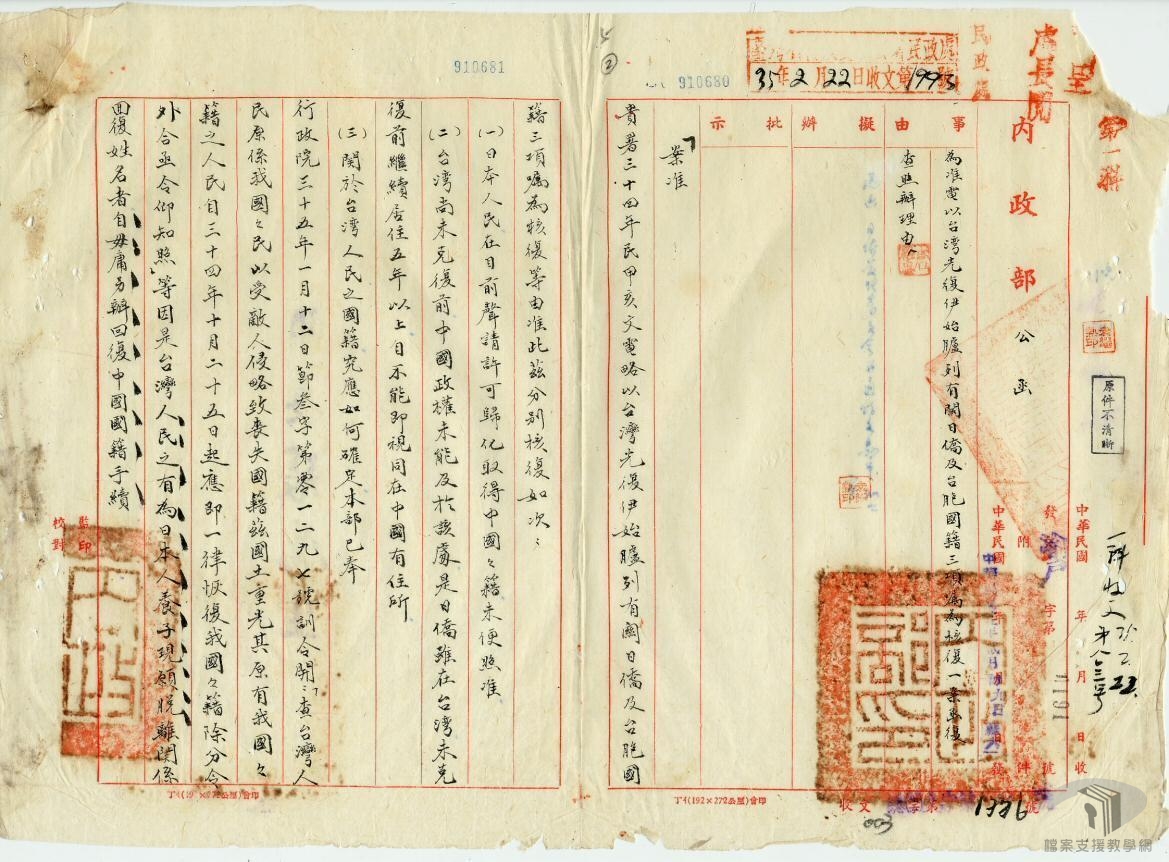 處長閱
民政處
第一科
內政部 公函
原件不清晰
35年2月22日收文第1993號
910680
910681
②
一科收文
35.2.22
中華民國 年 月 日收
發 字第 號
附 件
中華民國
渝戶
1191
事由
擬辦
批示
為准電以台灣光復伊始臚列有關日僑及台胞國籍三項囑為核復一案電復
查照辦理由
案准
貴署三十四年民甲亥文電略以台灣光復伊始臚列有關日僑及台胞國
籍三項囑為核復等由准此茲分別核復如次：
(一)日本人民在目前聲請許可歸化取得中國々籍未便照准
(二)台灣尚未克復前中國政權未能及於該處是日僑雖在台灣未克
復前繼續居住五年以上自不能即視同在中國有住所
(三)關於台灣人民之國籍究應如何確定本部已奉
行政院三十五年一月十二日節叁字第零一二九七號訓令開：「查台灣人
民原係我國々民以受敵人侵略致喪失國籍茲國土重光其原有我國々
籍之人民自三十四年十月二十五日起應即一律恢復我國々籍除分令
外合亟令仰知照」等因是台灣人民之有為日本人養子現願脫離關係
回復姓名者自毋庸另辦回復中國國籍手續
監印
校對
丁4(192×272公厘)會印
丁4(192×272公厘)會印
收文 字第1326號
003
檔案支援教學網